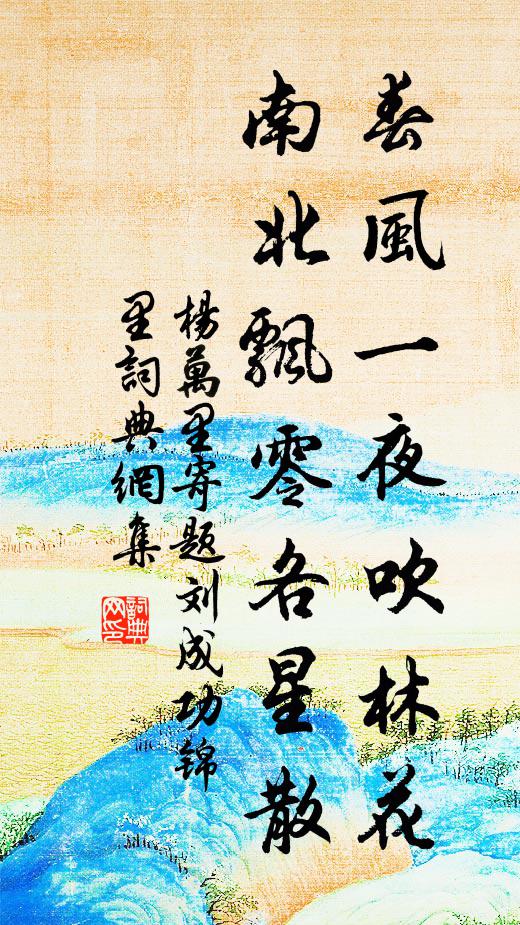 春風一夜吹林花
南北飄零各星散
楊萬里寄題刘成功錦
里詞典網集
詞典
网印